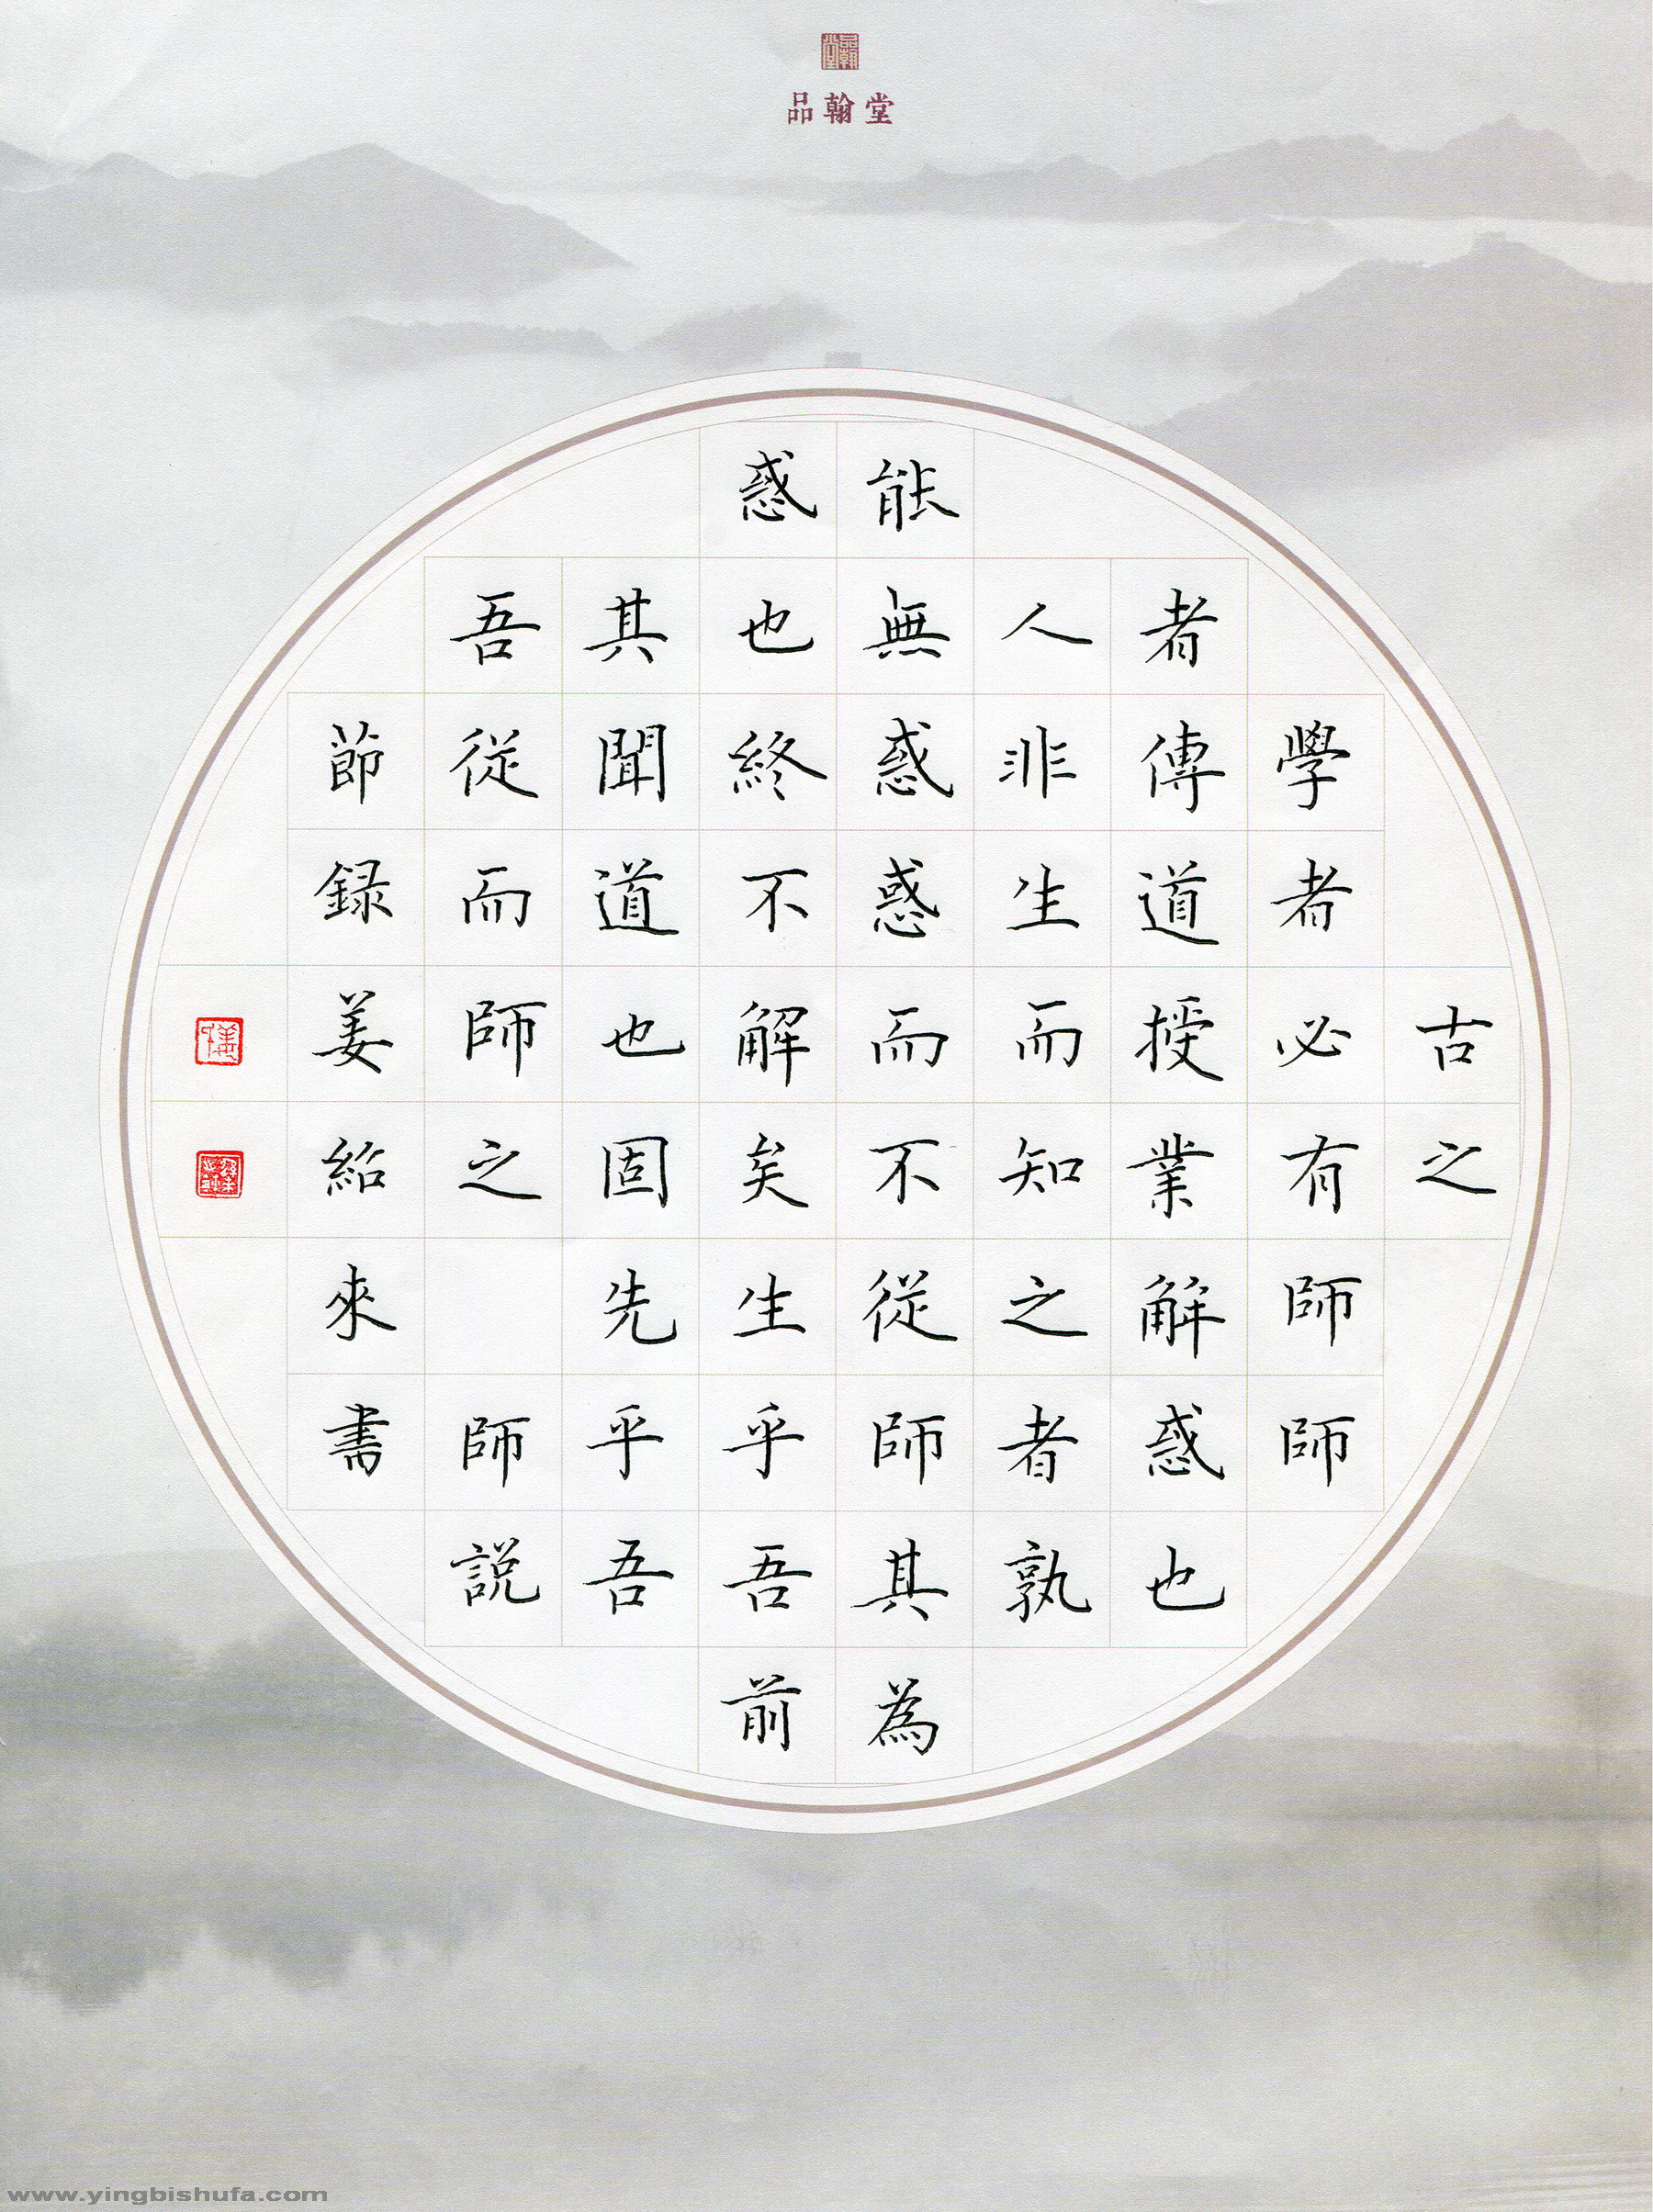 品翰堂
古之
學者必有師師
者傳道授業解惑也
人非生而知之者孰
能無惑惑而不從師其為
惑也終不解矣生乎吾前
其聞道也固先乎吾
吾從而師之 師說
節録姜紹來書
www.yingbishufa.com